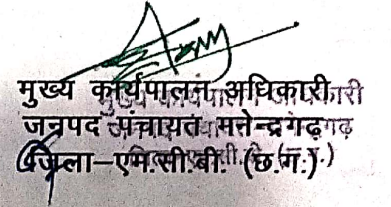 मुख्य कार्यपालन अधिकारी
जनपद पंचायत मनेन्द्रगढ़
जिला–एम.सी.बी. (छ.ग.)